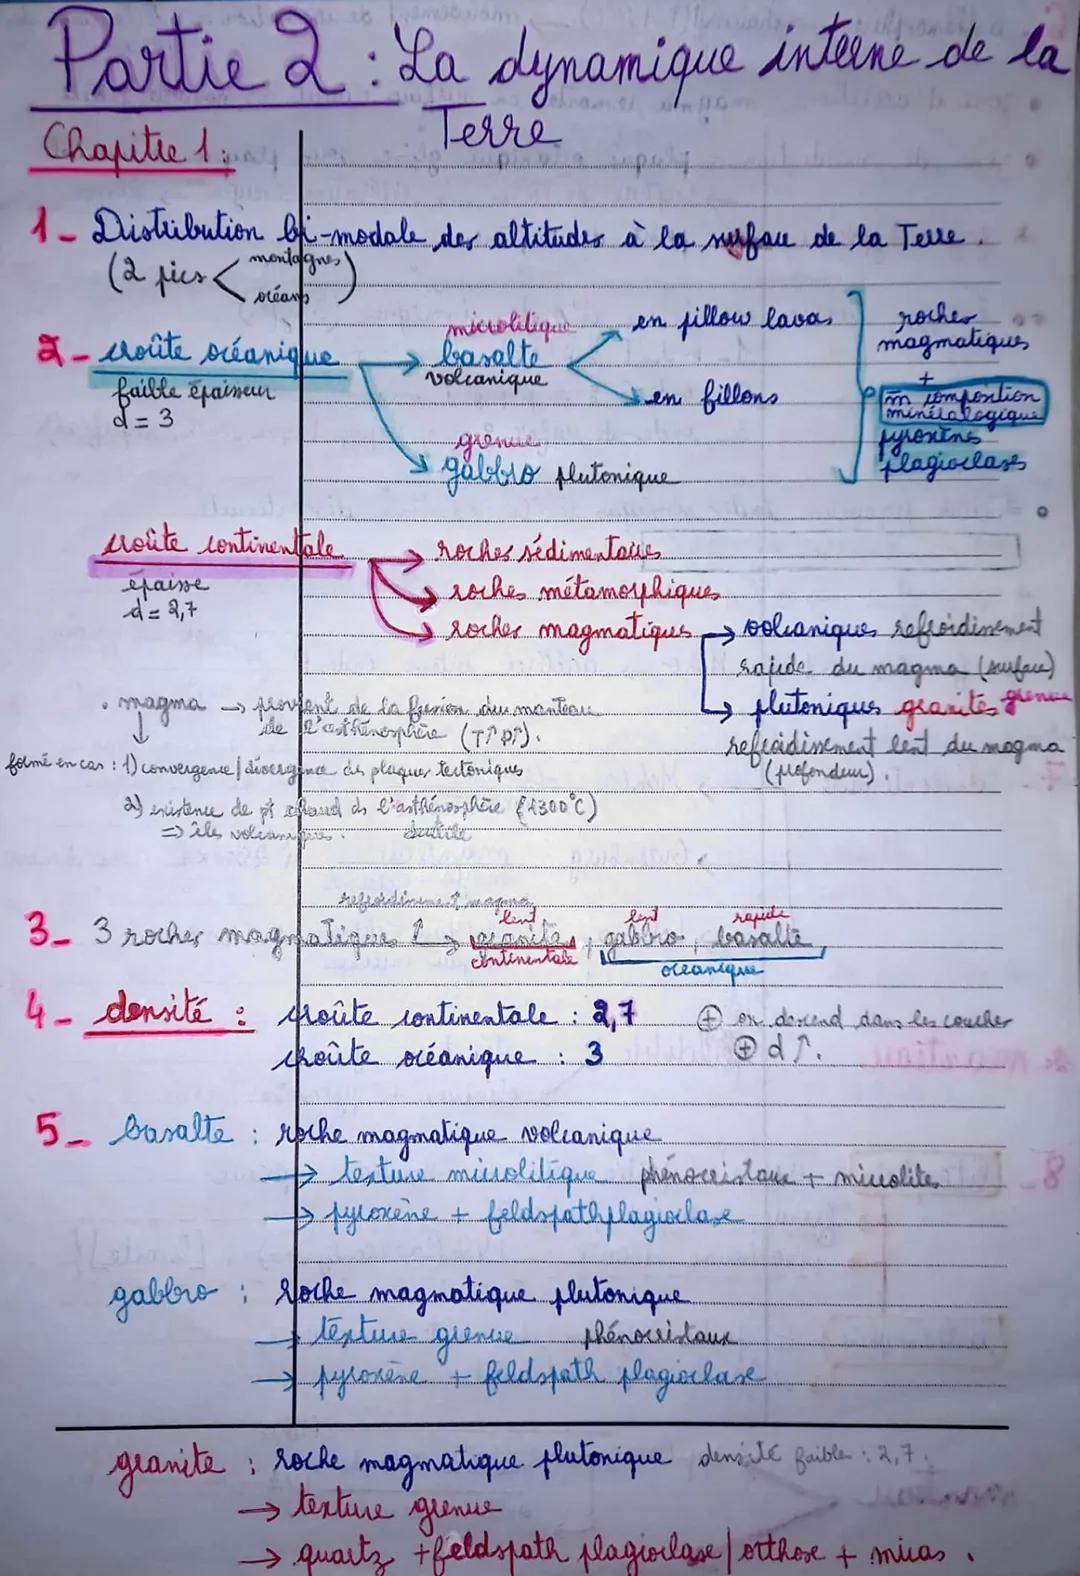 Partie 2 : La dynamique interne de la
Terre
Chapitre 1 :
1_ Distribution bi-modale des altitudes à la surface de la Terre.
(2 pics < montagnes
océans)
2_ croûte océanique
faible épaisseur
d = 3
microlitique
basalte
volcanique
en pillow lavas
en fillons
grenue
gabbro plutonique
roches
magmatiques
+
m composition
minéralogique
pyroxènes
plagioclases
croûte continentale
épaisse
d = 2,7
→ roches sédimentaires
→ roches métamorphiques
→ roches magmatiques
→ volcaniques refroidissement
rapide du magma (surface)
→ plutoniques granites grenue
refroidissement lent du magma
(profondeur).
• magma → provient de la fusion du manteau
de l'asthénosphère (T↑ P↑).
formé en cas : 1) convergence / divergence des plaques tectoniques
2) existence de pt chaud ds l'asthénosphère (1300°C)
ductile
=> îles volcaniques.
3_ 3 roches magmatiques
refroidissement magma
lent lent rapide
→ granites, gabbro, basalte
continentale
océanique
4_ densité : croûte continentale : 2,7
croûte océanique : 3
⊕ on descend dans les couches
⊕ d ↑.
5_ basalte : roche magmatique volcanique
→ texture microlitique phénocristaux + microlites
→ pyroxène + feldspath plagioclase
gabbro : Roche magmatique plutonique
→ texture grenue phénocristaux
→ pyroxène + feldspath plagioclase
granite : roche magmatique plutonique densité faible : 2,7.
→ texture grenue
→ quartz + feldspath plagioclase / orthose + micas.